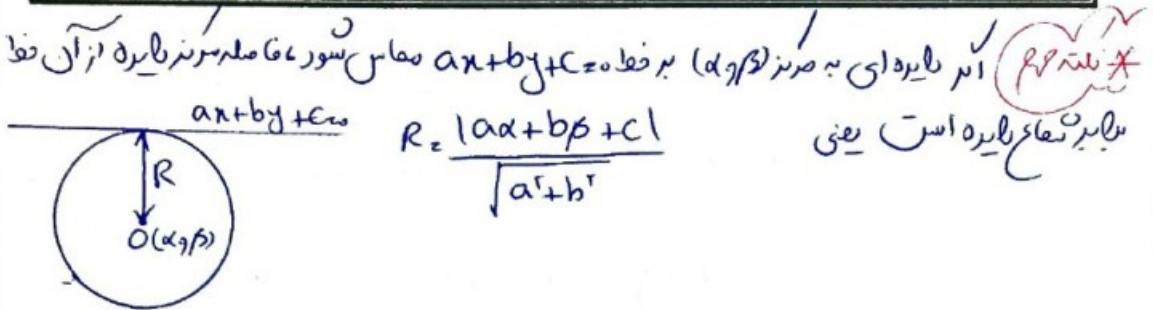 * نکته مهم اگر دایره ای به مرکز (α و β) بر خط ax+by+c=0 مماس شود، فاصله مرکز دایره از آن خط
برابر شعاع دایره است یعنی
R = |aα+bβ+c| / √(a²+b²)
ax+by+c=0
R
O(α و β)